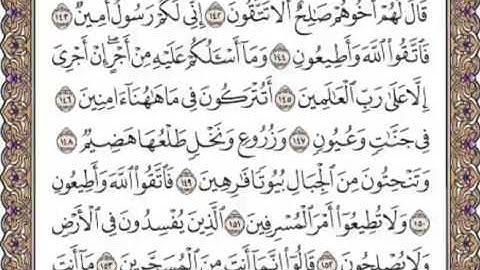 قَالَ لَهُمْ أَخُوهُمْ صَٰلِحٌ أَلَا تَتَّقُونَ ١٤٢ إِنِّي لَكُمْ رَسُولٌ أَمِينٌ ١٤٣
فَٱتَّقُوا۟ ٱللَّهَ وَأَطِيعُونِ ١٤٤ وَمَآ أَسْـَٔلُكُمْ عَلَيْهِ مِنْ أَجْرٍ ۖ إِنْ أَجْرِىَ
إِلَّا عَلَىٰ رَبِّ ٱلْعَٰلَمِينَ ١٤٥ أَتُتْرَكُونَ فِى مَا هَٰهُنَآ ءَامِنِينَ ١٤٦
فِى جَنَّٰتٍ وَعُيُونٍ ١٤٧ وَزُرُوعٍ وَنَخْلٍ طَلْعُهَا هَضِيمٌ ١٤٨
وَتَنْحِتُونَ مِنَ ٱلْجِبَالِ بُيُوتًا فَٰرِهِينَ ١٤٩ فَٱتَّقُوا۟ ٱللَّهَ وَأَطِيعُونِ
١٥٠ وَلَا تُطِيعُوٓا۟ أَمْرَ ٱلْمُسْرِفِينَ ١٥١ ٱلَّذِينَ يُفْسِدُونَ فِى ٱلْأَرْضِ
وَلَا يُصْلِحُونَ ١٥٢ قَالُوٓا۟ إِنَّمَآ أَنتَ مِنَ ٱلْمُسَحَّرِينَ ١٥٣ مَآ أَنتَ